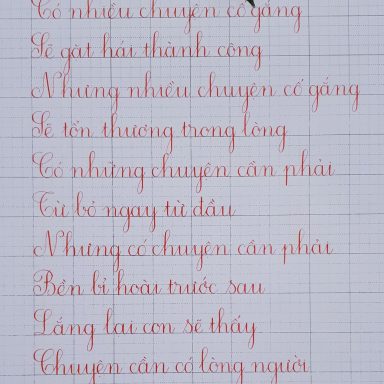 Có nhiều chuyện cố gắng
Sẽ gặt hái thành công
Nhưng nhiều chuyện cố gắng
Sẽ tổn thương trong lòng
Có những chuyện cần phải
Từ bỏ ngay từ đầu
Nhưng có chuyện cần phải
Bền bỉ hoài trước sau
Lắng lại con sẽ thấy
Chuyện cần có lòng người